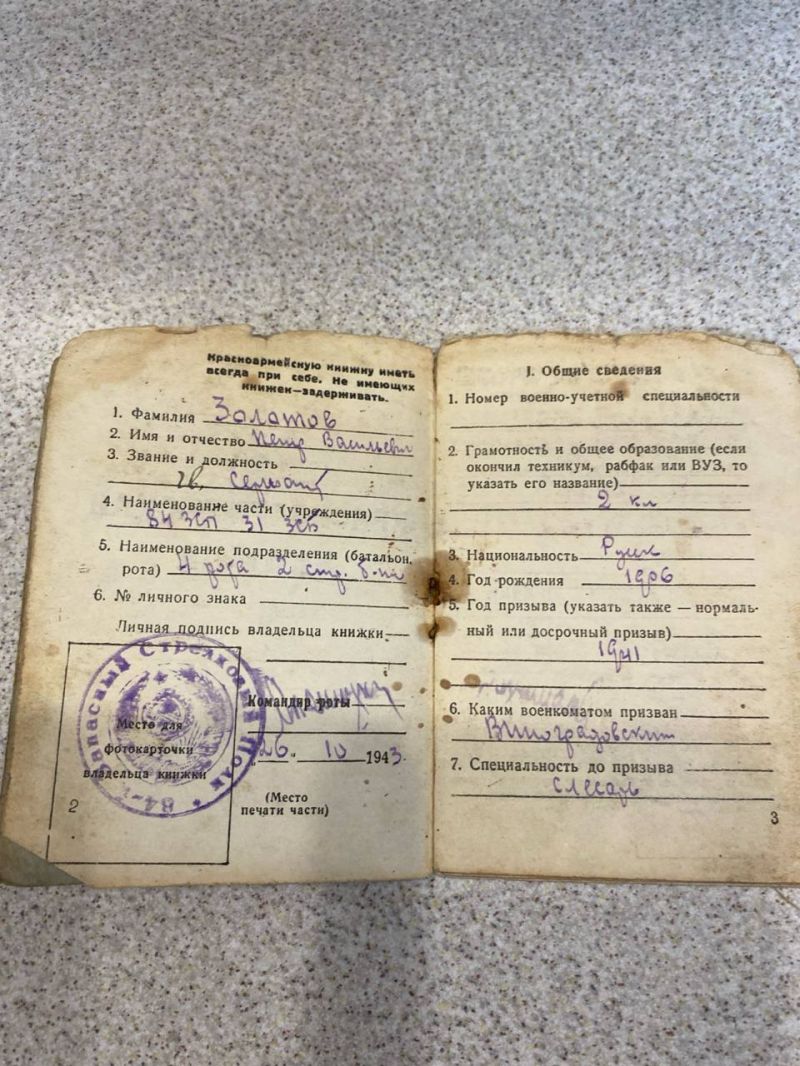 Красноармейскую книжку иметь
всегда при себе. Не имеющих
книжек—задерживать.
1. Фамилия Золотов
2. Имя и отчество Петр Васильевич
3. Звание и должность
гв. Сержант
4. Наименование части (учреждения)
84 ЗСП 31 ЗСБ
5. Наименование подразделения (батальон,
рота) 4 рота 2 стр. б-на
6. № личного знака
Личная подпись владельца книжки
Командир роты
26 10 1943
(Место
печати части)
Место для
фотокарточки
владельца книжки
Запасный Стрелковый Полк * 84
2
I. Общие сведения
1. Номер военно-учетной специальности
2. Грамотность и общее образование (если
окончил техникум, рабфак или ВУЗ, то
указать его название)
2 кл
3. Национальность Русск
4. Год рождения 1906
5. Год призыва (указать также — нормаль-
ный или досрочный призыв)
1941
6. Каким военкоматом призван
Виноградовским
7. Специальность до призыва
слесарь
3